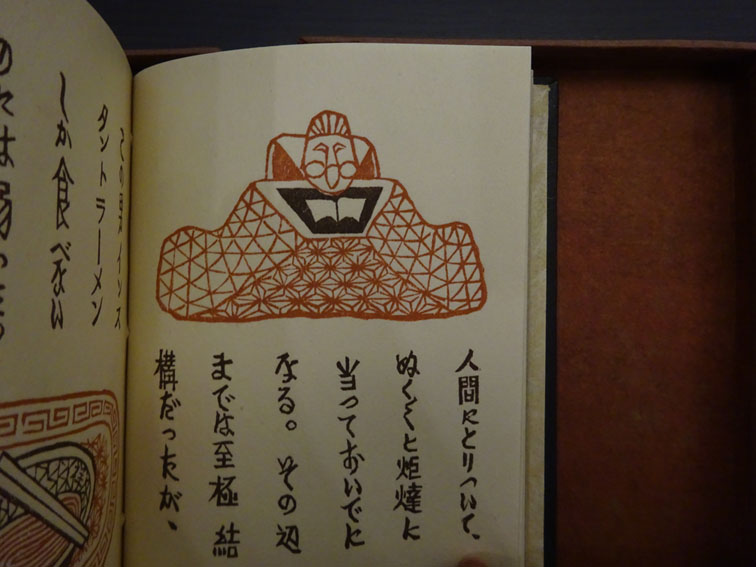 人間にとりついて、
ぬく〳〵と炬燵に
当っておいでに
なる。その辺
までは至極結
構だったが、
その男インス
タントラーメン
しか食べない
のには弱った。